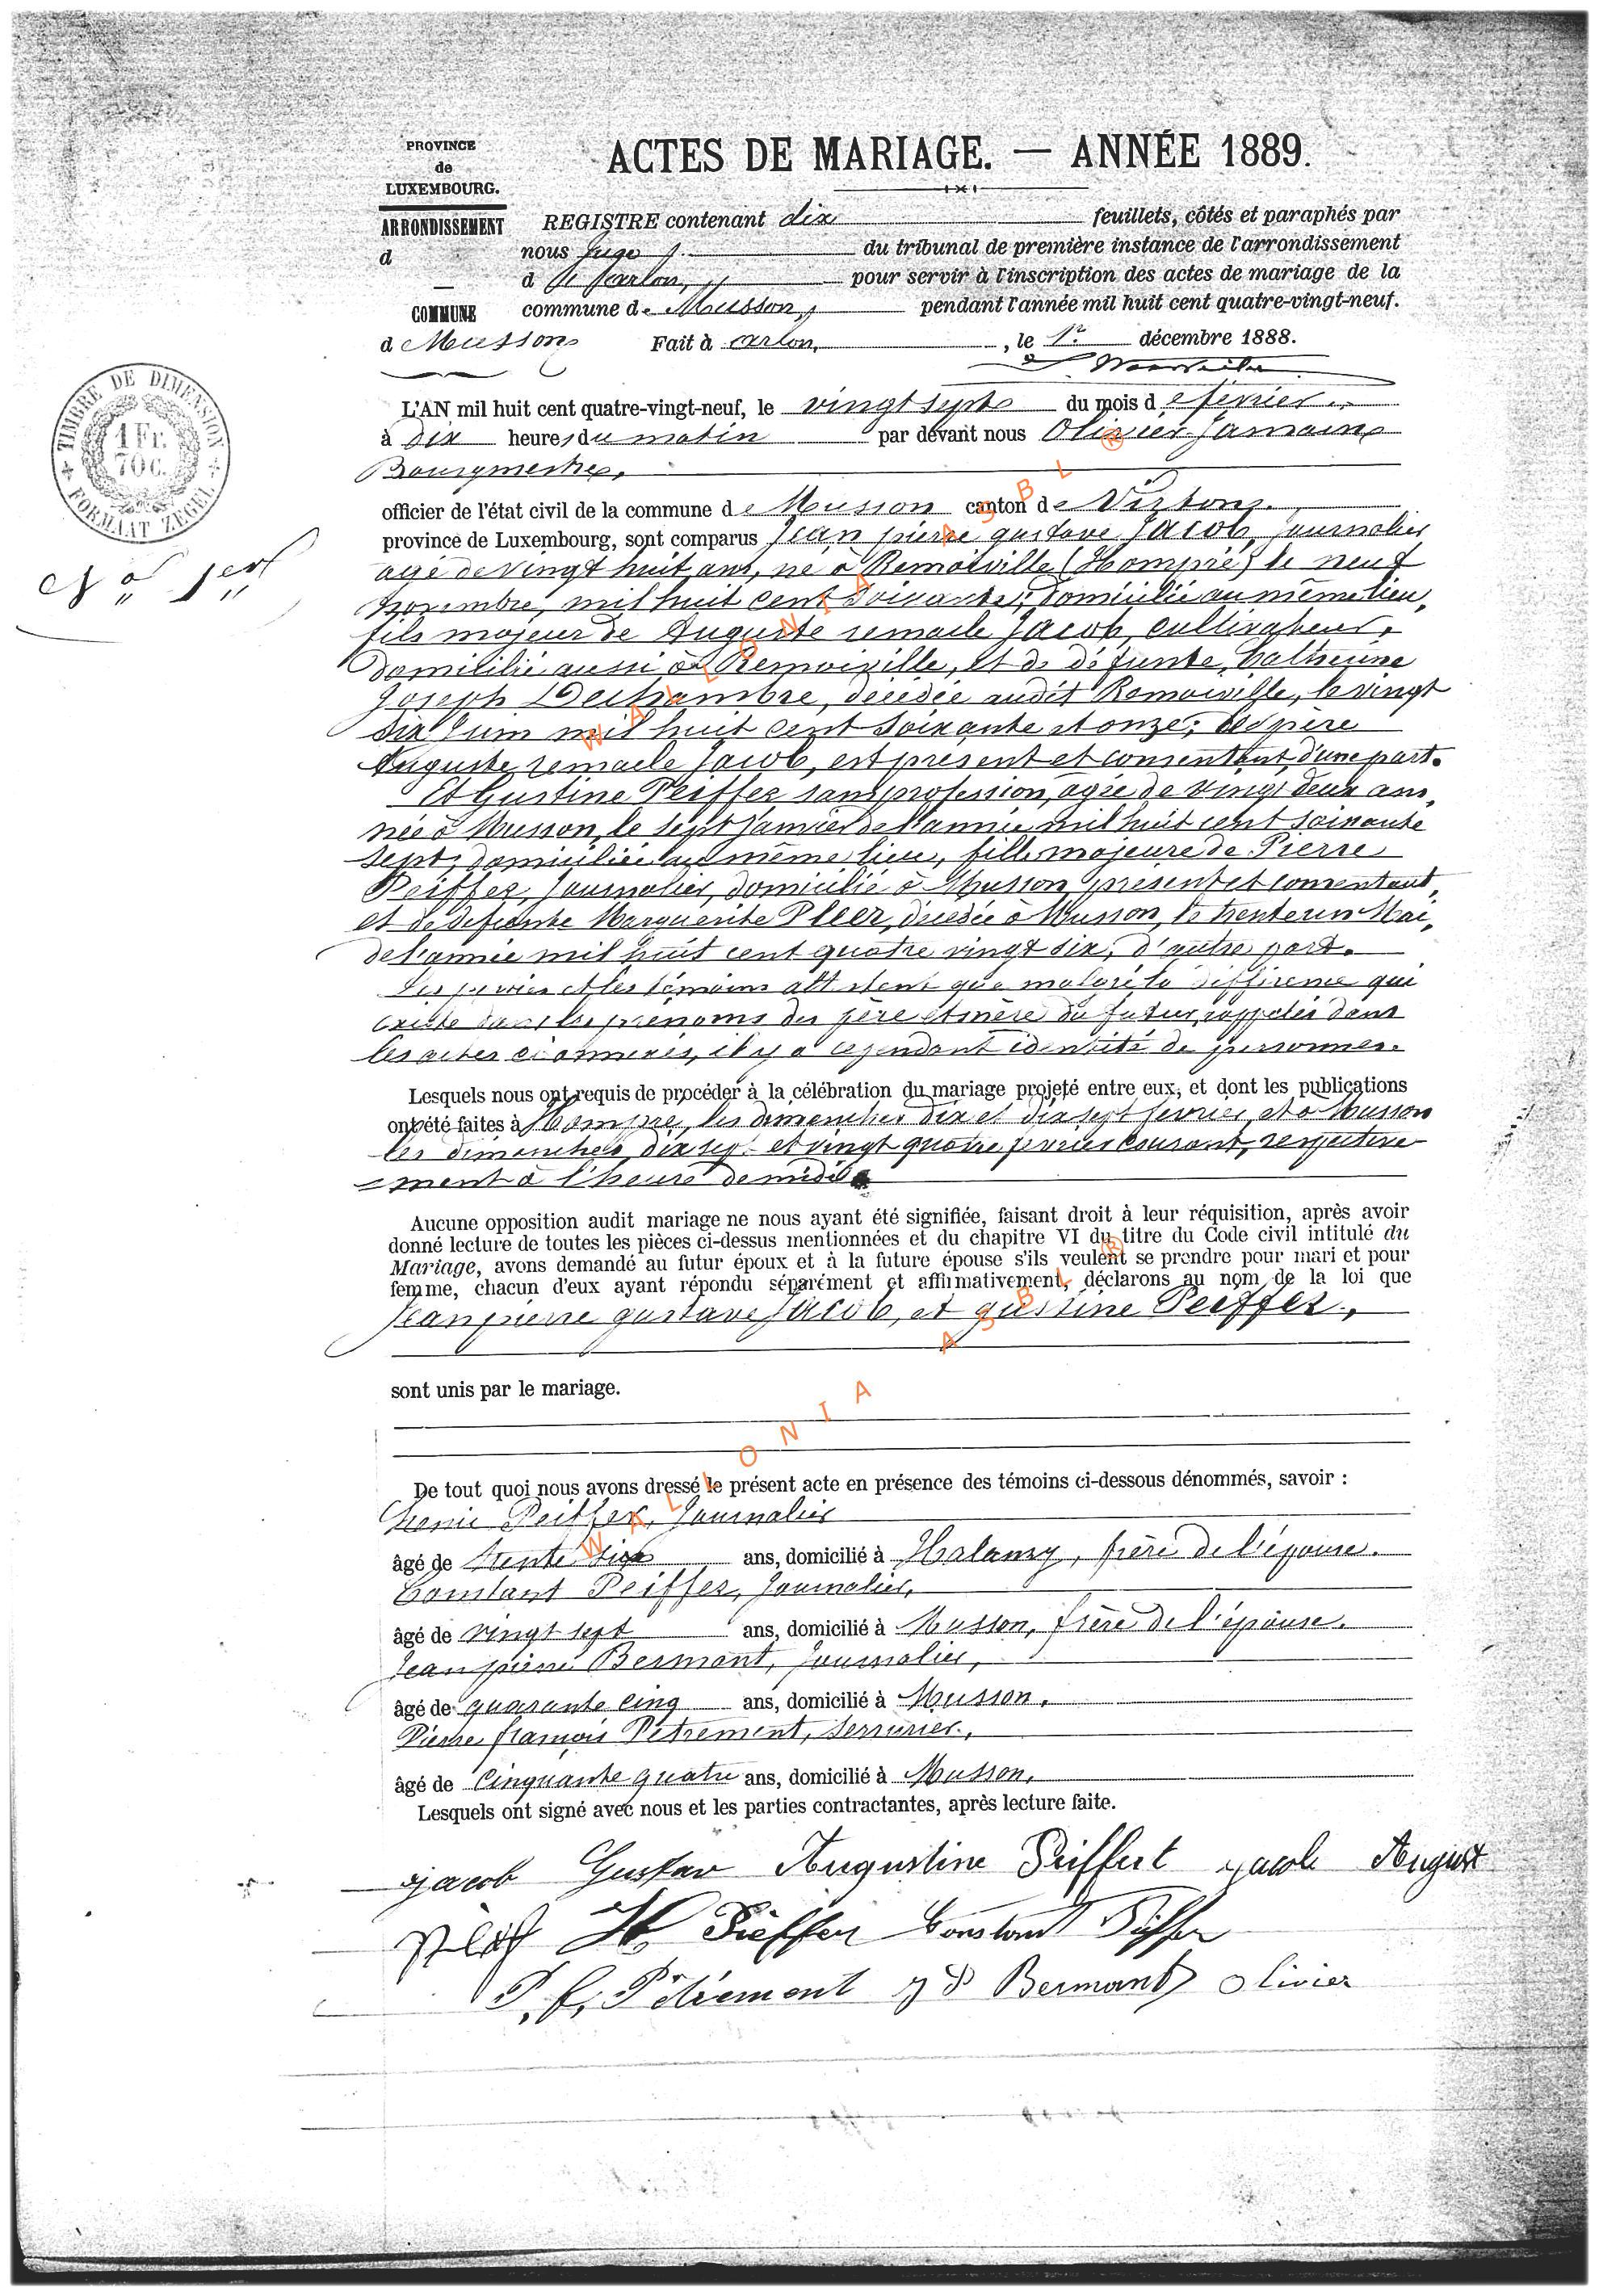 PROVINCE
de
LUXEMBOURG.
ARRONDISSEMENT
d
COMMUNE
d Musson
ACTES DE MARIAGE. — ANNÉE 1889.
REGISTRE contenant dix feuillets, côtés et paraphés par
nous Juge du tribunal de première instance de l'arrondissement
d arlon, pour servir à l'inscription des actes de mariage de la
commune de Musson, pendant l'année mil huit cent quatre-vingt-neuf.
Fait à arlon, , le 1r décembre 1888.
TIMBRE DE DIMENSION
1 Fr.
70 C.
FORMAAT ZEGEL
No 1er
L'AN mil huit cent quatre-vingt-neuf, le vingt sept du mois de février
à dix heures du matin par devant nous Olivier Jamain
Bourgmestre,
officier de l'état civil de la commune de Musson canton de Virton.
province de Luxembourg, sont comparus Jean pierre gustave Jacob, Journalier
agé de vingt huit ans, né à Remoiville (Hompré) le neuf
novembre, mil huit cent soixante; domicilié au même lieu,
fils majeur de Auguste remacle Jacob, cultivateur,
domicilié aussi à Remoiville, et de défunte Catherine
Joseph Dechambre, décédée audit Remoiville, le vingt
six Juin mil huit cent soixante et onze; le père
Auguste remacle Jacob, est présent et consentant, d'une part.
Et Gustine Peiffer sans profession, agée de vingt deux ans,
née à Musson, le sept Janvier de l'année mil huit cent soixante
sept, domiciliée au même lieu, fille majeure de Pierre
Peiffer, Journalier, domicilié à Musson, présent et consentant,
et de defunte Marguerite Pleer, décédée à Musson, le trente un Mai,
de l'année mil huit cent quatre vingt six, d'autre part.
et les témoins attestent que malgré la différence qui
existe dans les prénoms des père et mère du futur, rappelés dans
les actes ci annexés, il y a cependant identité de personnes.
Lesquels nous ont requis de procéder à la célébration du mariage projeté entre eux, et dont les publications
ont été faites à Hompré, les dimanches dix et dix sept février, et à Musson
les dimanches dix sept et vingt quatre février courant, respective
ment à l'heure de midi.
Aucune opposition audit mariage ne nous ayant été signifiée, faisant droit à leur réquisition, après avoir
donné lecture de toutes les pièces ci-dessus mentionnées et du chapitre VI du titre du Code civil intitulé du
Mariage, avons demandé au futur époux et à la future épouse s'ils veulent se prendre pour mari et pour
femme, chacun d'eux ayant répondu séparément et affirmativement, déclarons au nom de la loi que
Jean pierre gustave Jacob, et gustine Peiffer,
sont unis par le mariage.
De tout quoi nous avons dressé le présent acte en présence des témoins ci-dessous dénommés, savoir :
Peiffer, Journalier
âgé de trente six ans, domicilié à Halanzy, frère de l'épouse.
Constant Peiffer, Journalier,
âgé de vingt sept ans, domicilié à Musson, frère de l'épouse.
Jean pierre Bermont, Journalier,
âgé de quarante cinq ans, domicilié à Musson.
Pierre françois Petrement, serrurier,
âgé de Cinquante quatre ans, domicilié à Musson,
Lesquels ont signé avec nous et les parties contractantes, après lecture faite.
jacob Gustav Augustine Peiffert jacob August
H Pieffer Constant Piffer
P. f. Pétrement J P Bermont Olivier
WALLONIA ASBL ®
WALLONIA ASBL ®